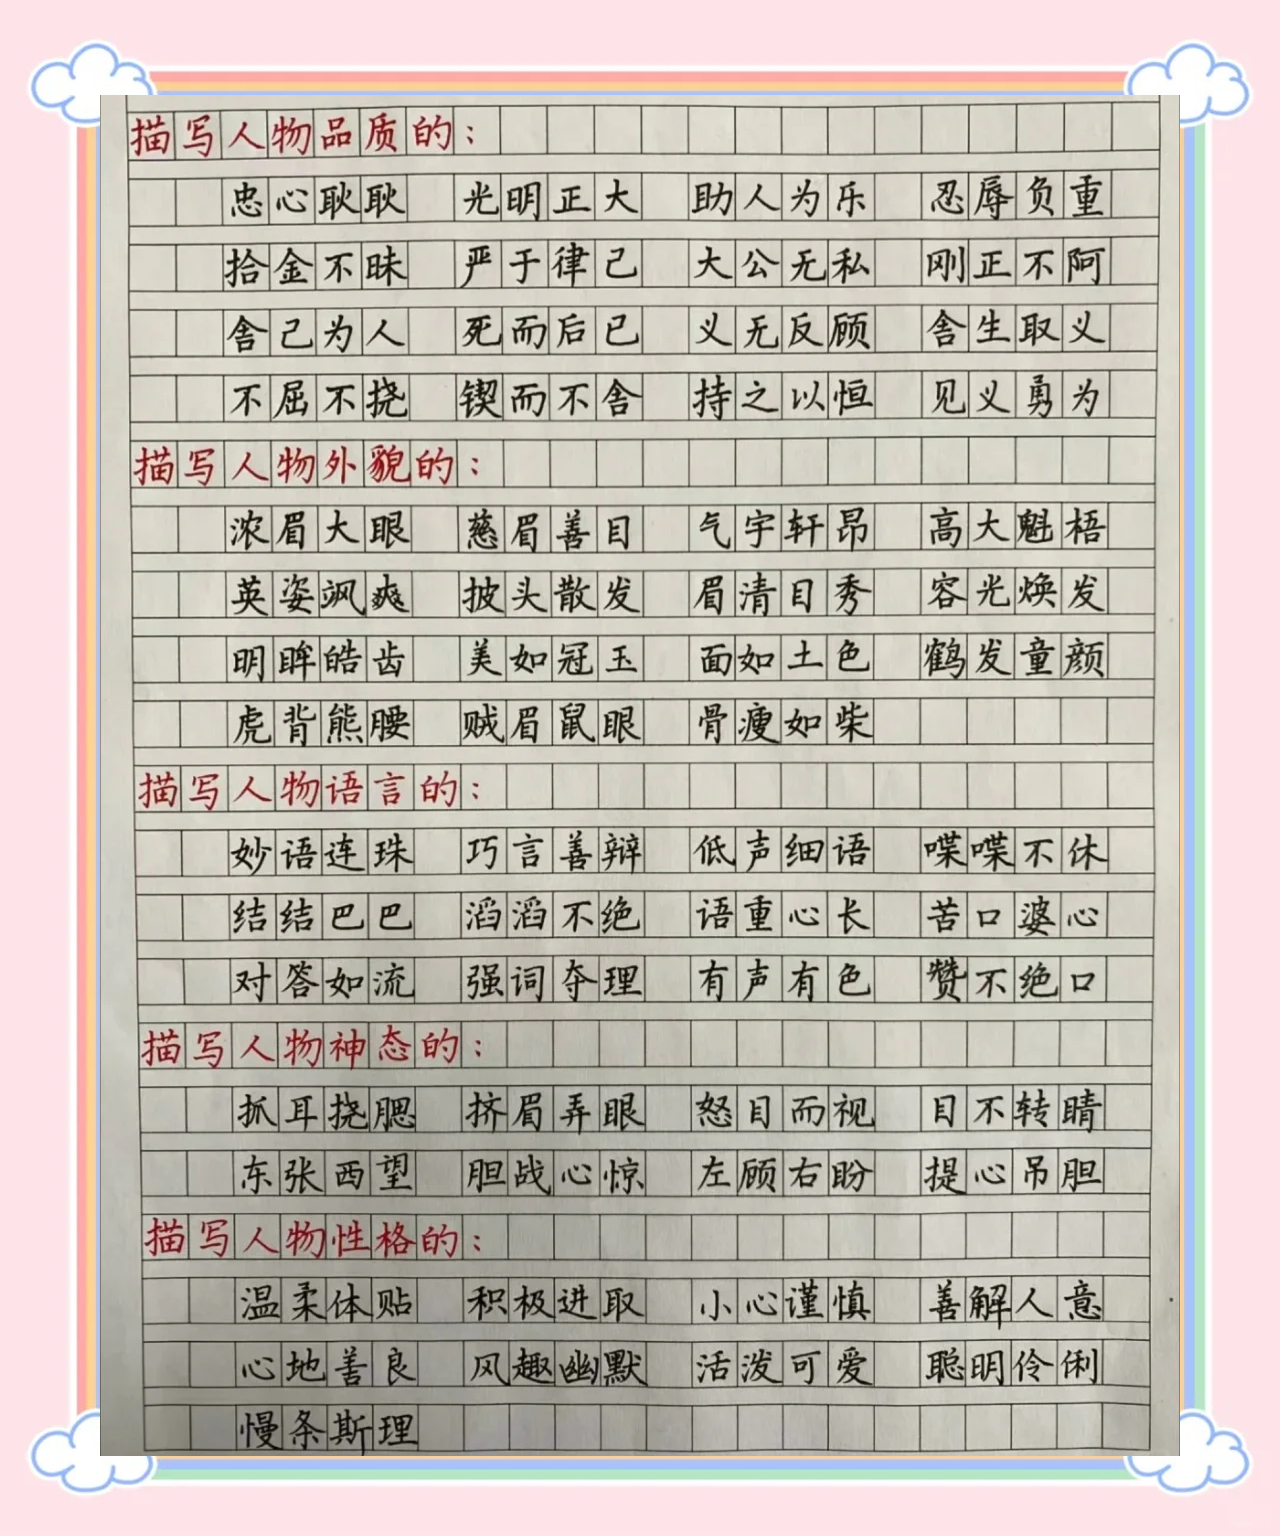 描写人物品质的：
忠心耿耿 光明正大 助人为乐 忍辱负重
拾金不昧 严于律己 大公无私 刚正不阿
舍己为人 死而后已 义无反顾 舍生取义
不屈不挠 锲而不舍 持之以恒 见义勇为
描写人物外貌的：
浓眉大眼 慈眉善目 气宇轩昂 高大魁梧
英姿飒爽 披头散发 眉清目秀 容光焕发
明眸皓齿 美如冠玉 面如土色 鹤发童颜
虎背熊腰 贼眉鼠眼 骨瘦如柴
描写人物语言的：
妙语连珠 巧言善辩 低声细语 喋喋不休
结结巴巴 滔滔不绝 语重心长 苦口婆心
对答如流 强词夺理 有声有色 赞不绝口
描写人物神态的：
抓耳挠腮 挤眉弄眼 怒目而视 目不转睛
东张西望 胆战心惊 左顾右盼 提心吊胆
描写人物性格的：
温柔体贴 积极进取 小心谨慎 善解人意
心地善良 风趣幽默 活泼可爱 聪明伶俐
慢条斯理